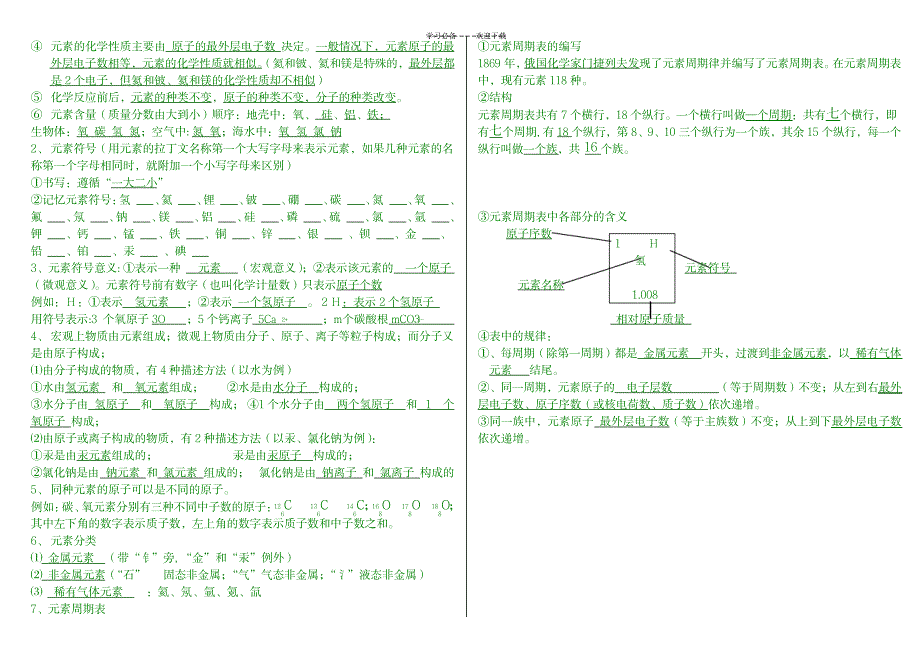 学习必备---欢迎下载
④ 元素的化学性质主要由 原子的最外层电子数 决定。一般情况下，元素原子的最
外层电子数相等，元素的化学性质就相似。（氦和铍、氦和镁是特殊的，最外层都
是２个电子，但氦和铍、氦和镁的化学性质却不相似）
⑤ 化学反应前后，元素的种类不变，原子的种类不变，分子的种类改变。
⑥ 元素含量（质量分数由大到小）顺序：地壳中：氧、 硅 铝、铁；
生物体：氧 碳 氢 氮；空气中：氮 氧；海水中：氧 氢 氯 钠
2、元素符号（用元素的拉丁文名称第一个大写字母来表示元素，如果几种元素的名
称第一个字母相同时，就附加一个小写字母来区别）
①书写：遵循“一大二小”
②记忆元素符号：氢 ___、氦 ___、锂 ___、铍 ___、硼 ___、碳 ___、氮 ___、氧 ___、
氟 ___、氖 ___、钠 ___、镁 ___、铝 ___、硅 ___、磷 ___、硫 ___、氯 ___、氩 ___、
钾 ___、钙 ___、锰 ___、铁 ___、铜 ___、锌 ___、银 ___ 、钡 ___、金 ___、
铅 ___、铂 ___、汞 ___ 、碘 ___
3、元素符号意义：①表示一种 元素 （宏观意义）；②表示该元素的 一个原子
（微观意义）。元素符号前有数字（也叫化学计量数）只表示原子个数
例如：H：①表示 氢元素 ；②表示 一个氢原子 。２H：表示２个氢原子
用符号表示:3 个氧原子 3O ；５个钙离子 5Ca 2+ ；m个碳酸根 mCO3-
4、 宏观上物质由元素组成；微观上物质由分子、原子、离子等粒子构成；而分子又
是由原子构成；
⑴由分子构成的物质，有４种描述方法（以水为例）
①水由氢元素 和 氧元素组成； ②水是由水分子 构成的；
③水分子由 氢原子 和 氧原子 构成； ④1个水分子由 两个氢原子 和 1 个
氧原子 构成；
⑵由原子或离子构成的物质，有２种描述方法（以汞、氯化钠为例）：
①汞是由汞元素组成的； 汞是由汞原子 构成的；
②氯化钠是由 钠元素 和 氯元素 组成的； 氯化钠是由 钠离子 和 氯离子 构成的
5、 同种元素的原子可以是不同的原子。
例如：碳、氧元素分别有三种不同中子数的原子：¹²₆C ¹³₆C ¹⁴₆C；¹⁶₈O ¹⁷₈O ¹⁸₈O；
其中左下角的数字表示质子数，左上角的数字表示质子数和中子数之和。
6、 元素分类
⑴ 金属元素 （带“钅”旁，“金”和“汞”例外）
⑵ 非金属元素（“石” 固态非金属；“气”气态非金属；“氵”液态非金属）
⑶ 稀有气体元素 ：氦、氖、氩、氪、氙
7、元素周期表
①元素周期表的编写
1869 年，俄国化学家门捷列夫发现了元素周期律并编写了元素周期表。在元素周期表
中，现有元素 118 种。
②结构
元素周期表共有７个横行，18 个纵行。一个横行叫做一个周期；共有七个横行，即
有七个周期，有 18 个纵行，第 8、9、10 三个纵行为一个族，其余 15 个纵行，每一个
纵行叫做一个族，共 16 个族。
③元素周期表中各部分的含义
原子序数
1 H
氢
元素符号
元素名称
1.008
相对原子质量
④表中的规律：
①、每周期（除第一周期）都是 金属元素 开头，过渡到非金属元素，以 稀有气体
元素 结尾。
②、同一周期，元素原子的 电子层数 （等于周期数）不变；从左到右最外
层电子数、原子序数（或核电荷数、质子数）依次递增。
③同一族中，元素原子 最外层电子数（等于主族数）不变；从上到下最外层电子数
依次递增。